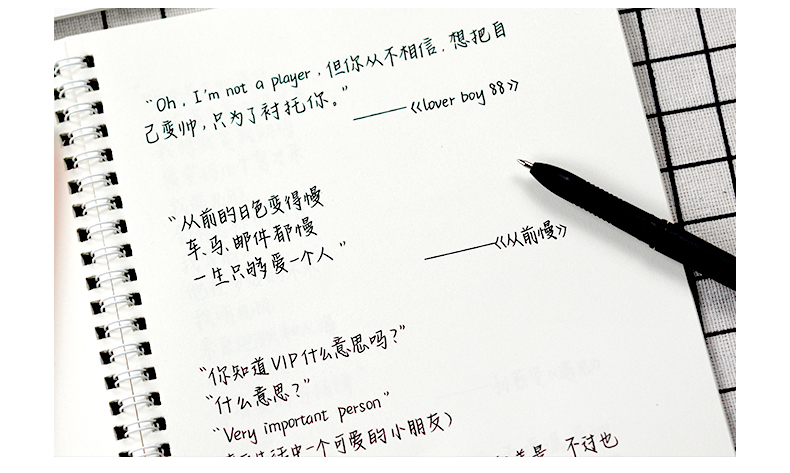 “Oh, I'm not a player, 但你从不相信, 想把自
己变帅, 只为了衬托你。”
——《lover boy 88》
“从前的日色变得慢
车、马、邮件都慢
一生只够爱一个人”
——《从前慢》
“你知道VIP什么意思吗?”
“什么意思?”
“Very important person”
生活中一个可爱的小朋友)
不过也